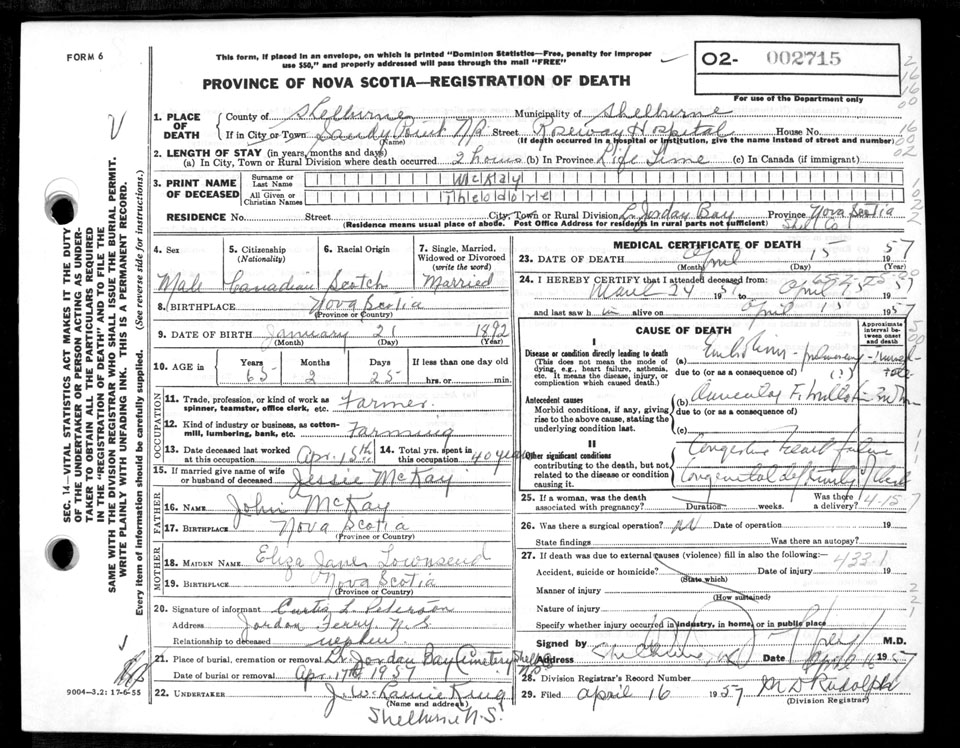 FORM 6
This form, if placed in an envelope, on which is printed "Dominion Statistics—Free, penalty for improper
use $50," and properly addressed will pass through the mail "FREE"
O2- 002715
For use of the Department only
PROVINCE OF NOVA SCOTIA—REGISTRATION OF DEATH
1. PLACE OF DEATH
County of Shelburne Municipality of Shelburne
If in City or Town Sandy Point N/R Street Roseway Hospital House No.
(Name) (If death occurred in a hospital or institution, give name instead of street and number)
2. LENGTH OF STAY (in years, months and days)
(a) In City, Town or Rural Division where death occurred 2 hours (b) In Province Life Time (c) In Canada (if immigrant)
3. PRINT NAME OF DECEASED
Surname or Last Name McKay
All Given or Christian Names Theodore
RESIDENCE No. Street City, Town or Rural Division L. Jorday Bay Province Nova Scotia
(Residence means usual place of abode. Post Office Address for residents in rural parts not sufficient) Shel Co
4. Sex Male
5. Citizenship (Nationality) Canadian
6. Racial Origin Scotch
7. Single, Married, Widowed or Divorced (write the word) Married
8. BIRTHPLACE Nova Scotia
(Province or Country)
9. DATE OF BIRTH January 21 1892
(Month) (Day) (Year)
10. AGE in Years 65 Months 2 Days 25 If less than one day old hrs. or min.
OCCUPATION
11. Trade, profession, or kind of work as spinner, teamster, office clerk, etc. Farmer.
12. Kind of industry or business, as cotton-mill, lumbering, bank, etc. Farming
13. Date deceased last worked at this occupation Apr. 15th
14. Total yrs. spent in this occupation 40 years
15. If married give name of wife or husband of deceased Jessie McKay
FATHER
16. NAME John McKay
17. BIRTHPLACE Nova Scotia
(Province or Country)
MOTHER
18. MAIDEN NAME Eliza Jane Townsend
19. BIRTHPLACE Nova Scotia
(Province or Country)
20. Signature of informant Curtis L. Peterson
Address Jordan Ferry N.S.
Relationship to deceased nephew
21. Place of burial, cremation or removal Lr. Jorday Bay Cemetery Shelb
Date of burial or removal Apr. 17th 1957
22. UNDERTAKER
(Name and address)
Shelburne N.S.
MEDICAL CERTIFICATE OF DEATH
23. DATE OF DEATH April 15 57
(Month) (Day) (Year)
24. I HEREBY CERTIFY that I attended deceased from:
March 24 1957 to April 15 57
and last saw him alive on April 15 1957
CAUSE OF DEATH
Approximate interval between onset and death
I
Disease or condition directly leading to death
(This does not mean the mode of dying, e.g., heart failure, asthenia, etc. It means the disease, injury, or complication which caused death.)
(a) Embolism - pulmonary
due to (or as a consequence of) (?)
Antecedent causes
Morbid conditions, if any, giving rise to the above cause, stating the underlying condition last.
(b) Auricular Fibrillation
due to (or as a consequence of)
(c)
II
Other significant conditions
contributing to the death, but not related to the disease or condition causing it.
Congestive Heart failure
Congenital deformity
25. If a woman, was the death associated with pregnancy? Duration weeks. Was there a delivery?
4.15.7
26. Was there a surgical operation? no Date of operation 19
State findings Was there an autopsy?
27. If death was due to external causes (violence) fill in also the following:
433.1
Accident, suicide or homicide? Date of injury 19
(State which)
Manner of injury
(How sustained)
Nature of injury
Specify whether injury occurred in industry, in home, or in public place
Signed by M.D.
Address Shelburne, NS Date April 16 1957
28. Division Registrar's Record Number
29. Filed april 16 1957 M D Rudolph
(Division Registrar)
SEC. 14—VITAL STATISTICS ACT MAKES IT THE DUTY
OF THE UNDERTAKER OR PERSON ACTING AS UNDER-
TAKER TO OBTAIN ALL THE PARTICULARS REQUIRED
IN THE "REGISTRATION OF DEATH" AND TO FILE THE
SAME WITH THE DIVISION REGISTRAR WHO SHALL ISSUE THE BURIAL PERMIT.
WRITE PLAINLY WITH UNFADING INK. THIS IS A PERMANENT RECORD.
Every item of information should be carefully supplied. (See reverse side for instructions.)
9004-3.2: 17-6-55